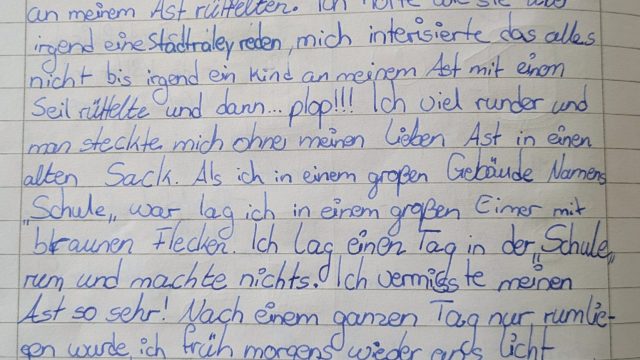 an meinem Ast rüttelten. Ich hörte wie sie
irgend eine Stadtraley reden, mich interisierte das alles
nicht bis irgend ein Kind an meinem Ast mit einem
Seil rüttelte und dann... plop!!! Ich viel runder und
man steckte mich ohne meinen lieben Ast in einen
alten Sack. Als ich in einem großen Gebäude Namens
„Schule„ war lag ich in einem großen Eimer mit
braunen Flecken. Ich lag einen Tag in der „Schule„
rum und machte nichts. Ich vermisste meinen
Ast so sehr! Nach einem ganzen Tag nur rumlie-
gen wurde ich früh morgens wieder ans licht